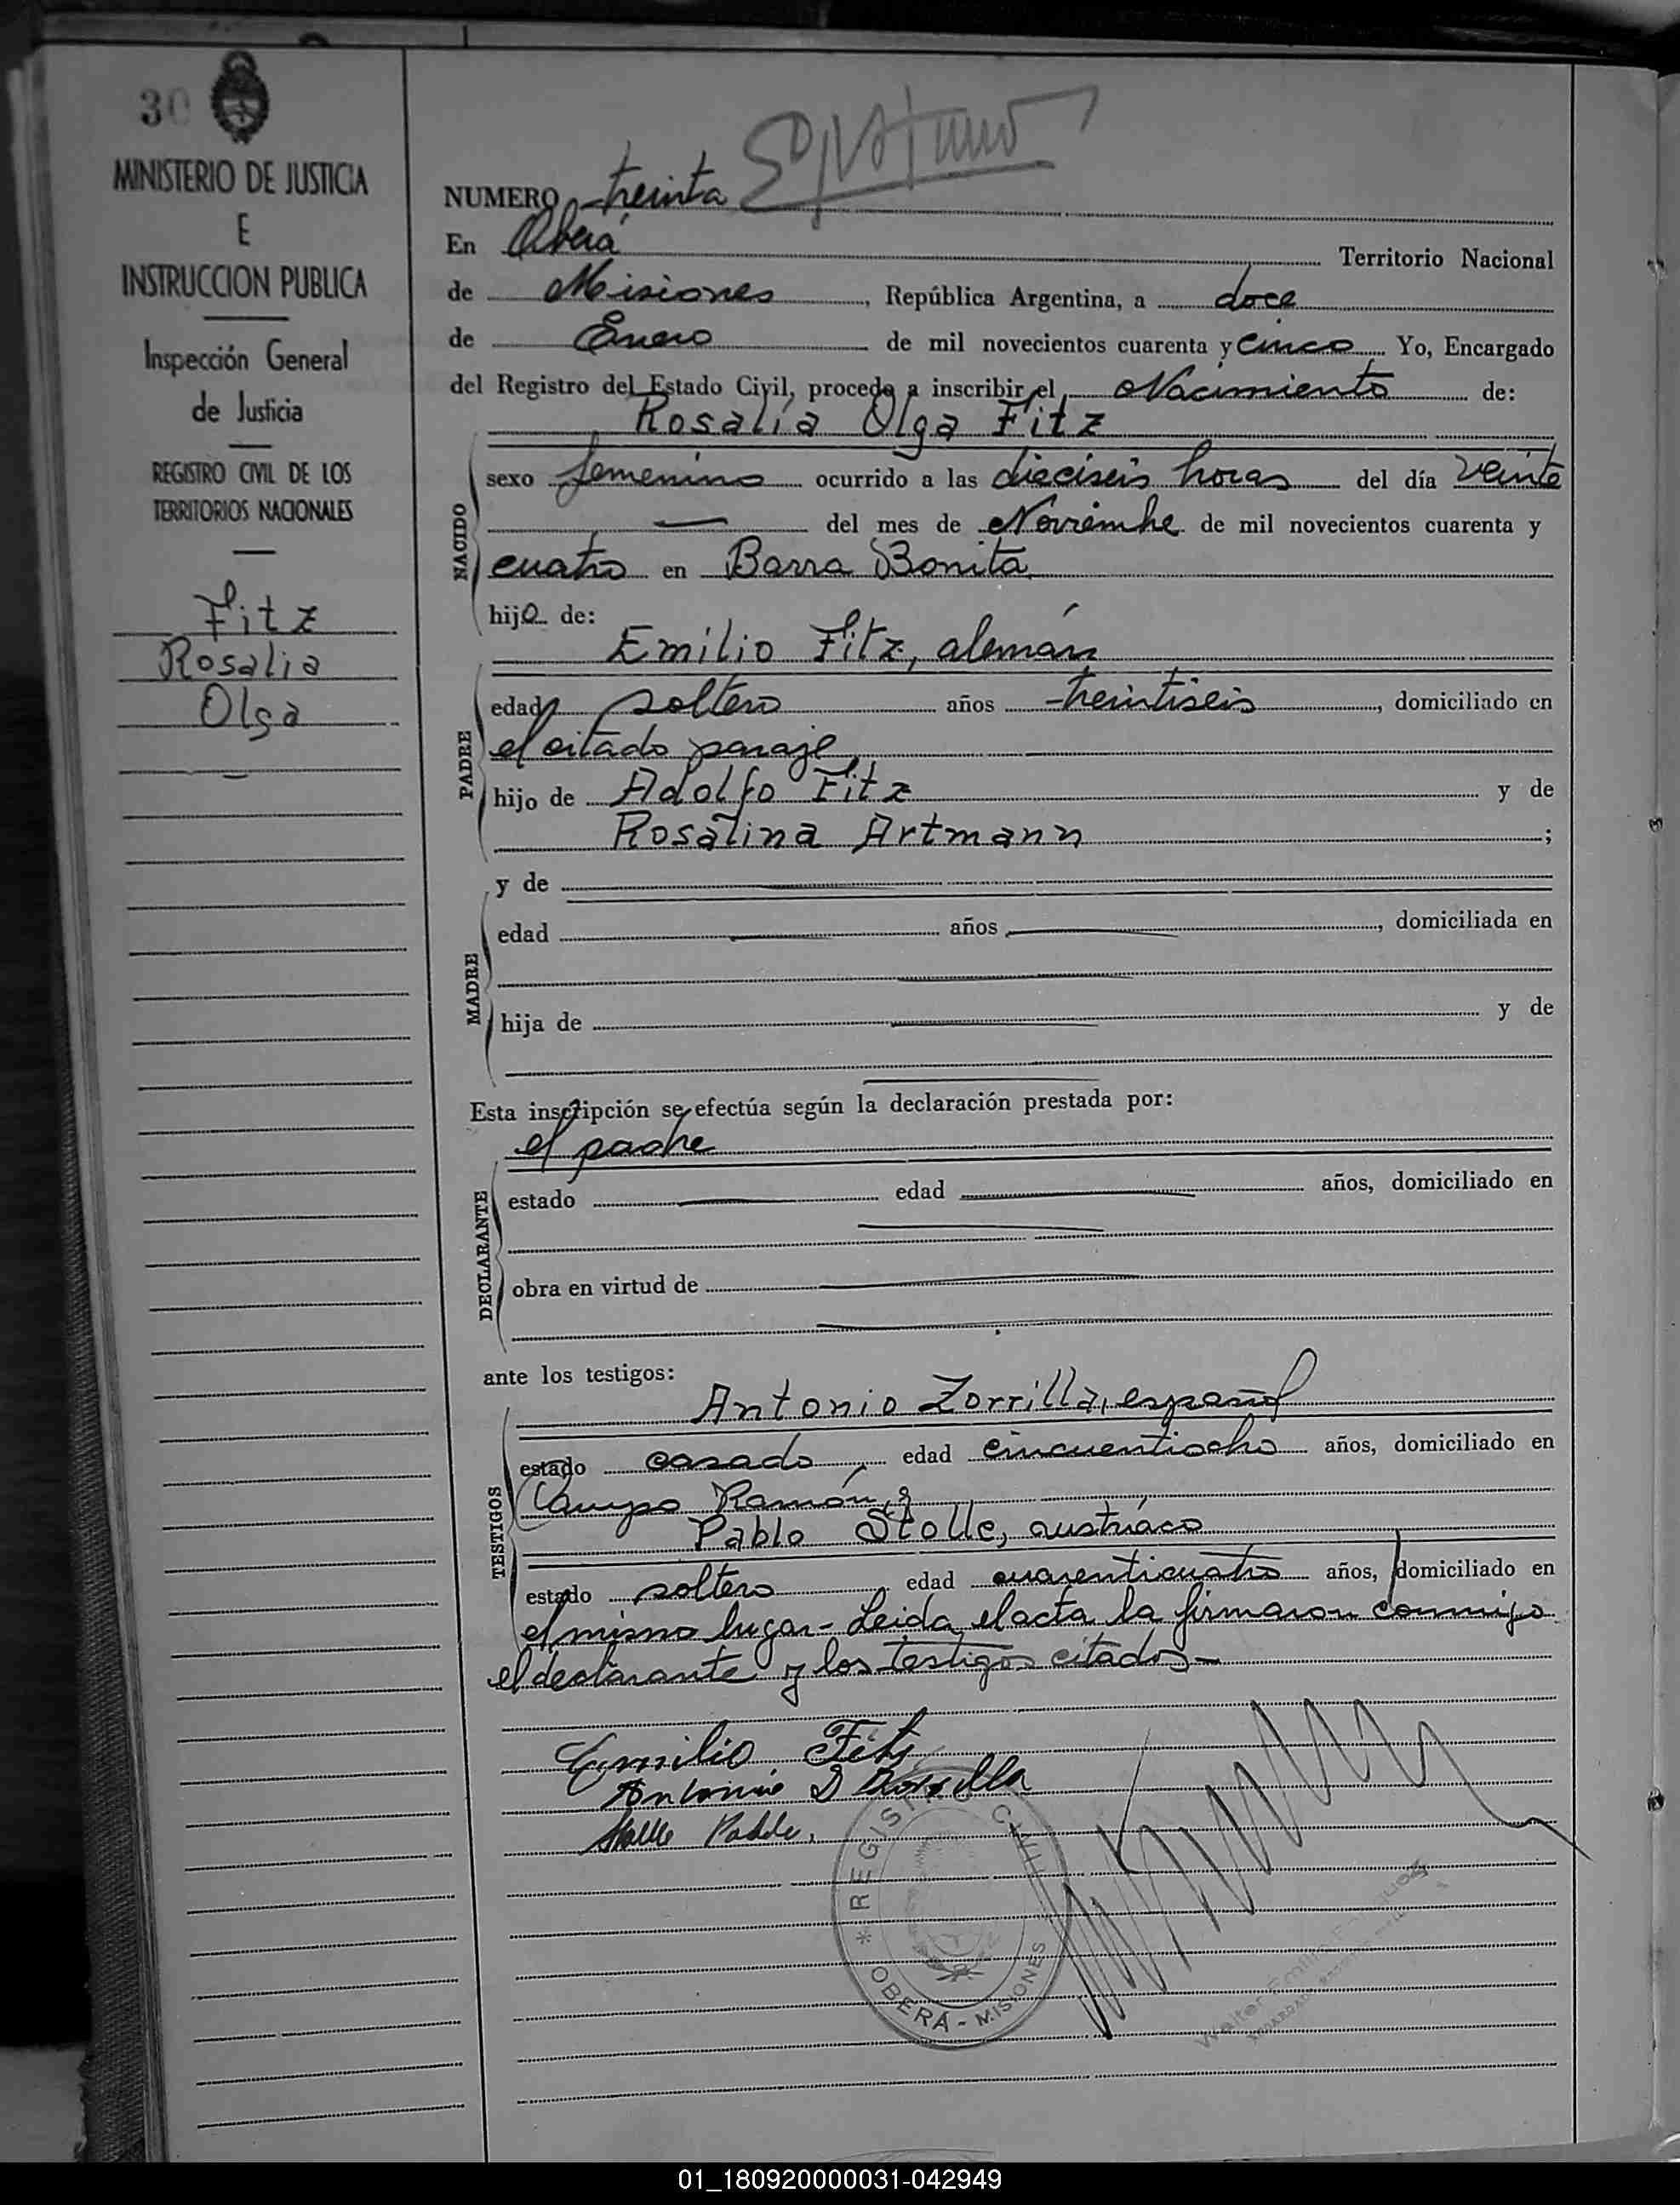 30
MINISTERIO DE JUSTICIA
E
INSTRUCCION PUBLICA
Inspección General
de Justicia
REGISTRO CIVIL DE LOS
TERRITORIOS NACIONALES
Fitz
Rosalia
Olga
NUMERO treinta
En Oberá Territorio Nacional
de Misiones, República Argentina, a doce
de Enero de mil novecientos cuarenta y cinco Yo, Encargado
del Registro del Estado Civil, procedo a inscribir el Nacimiento de:
Rosalía Olga Fitz
NACIDO
sexo femenino ocurrido a las dieciseis horas del día veinte
— del mes de Noviembre de mil novecientos cuarenta y
cuatro en Barra Bonita
hija de:
Emilio Fitz, alemán
PADRE
edad soltero años treintiseis, domiciliado en
el citado paraje
hijo de Adolfo Fitz y de
Rosalina Artmann ;
MADRE
y de
edad años , domiciliada en
hija de y de
Esta inscripción se efectúa según la declaración prestada por:
el padre
DECLARANTE
estado edad años, domiciliado en
obra en virtud de
ante los testigos:
TESTIGOS
Antonio Zorrilla, español
estado casado edad cincuentiocho años, domiciliado en
Campo Ramón, y
Pablo Stolle, austríaco
estado soltero edad cuarenticuatro años, domiciliado en
el mismo lugar - Leida el acta la firmaron conmigo
el declarante y los testigos citados -
Emilio Fitz
Antonio Zorrilla
Stolle Pablo.
* REGISTRO CIVIL * OBERÁ - MISIONES
Walter Emilio
01_180920000031-042949